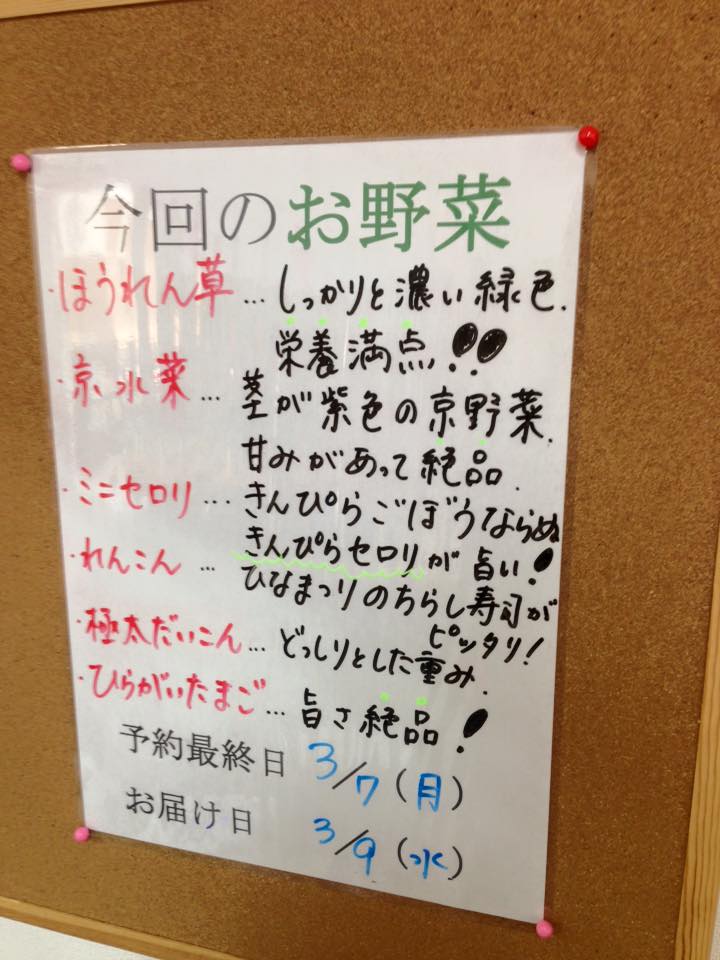 今回のお野菜
・ほうれん草…しっかりと濃い緑色.
栄養満点!!
・京水菜…茎が紫色の京野菜.
甘みがあって絶品.
・ミニセロリ…きんぴらごぼうならぬ
きんぴらセロリが旨い!
・れんこん…ひなまつりのちらし寿司が
ピッタリ!
・極太だいこん…どっしりとした重み.
・ひらがいたまご…旨さ絶品!
予約最終日 3/7(月)
お届け日 3/9(水)